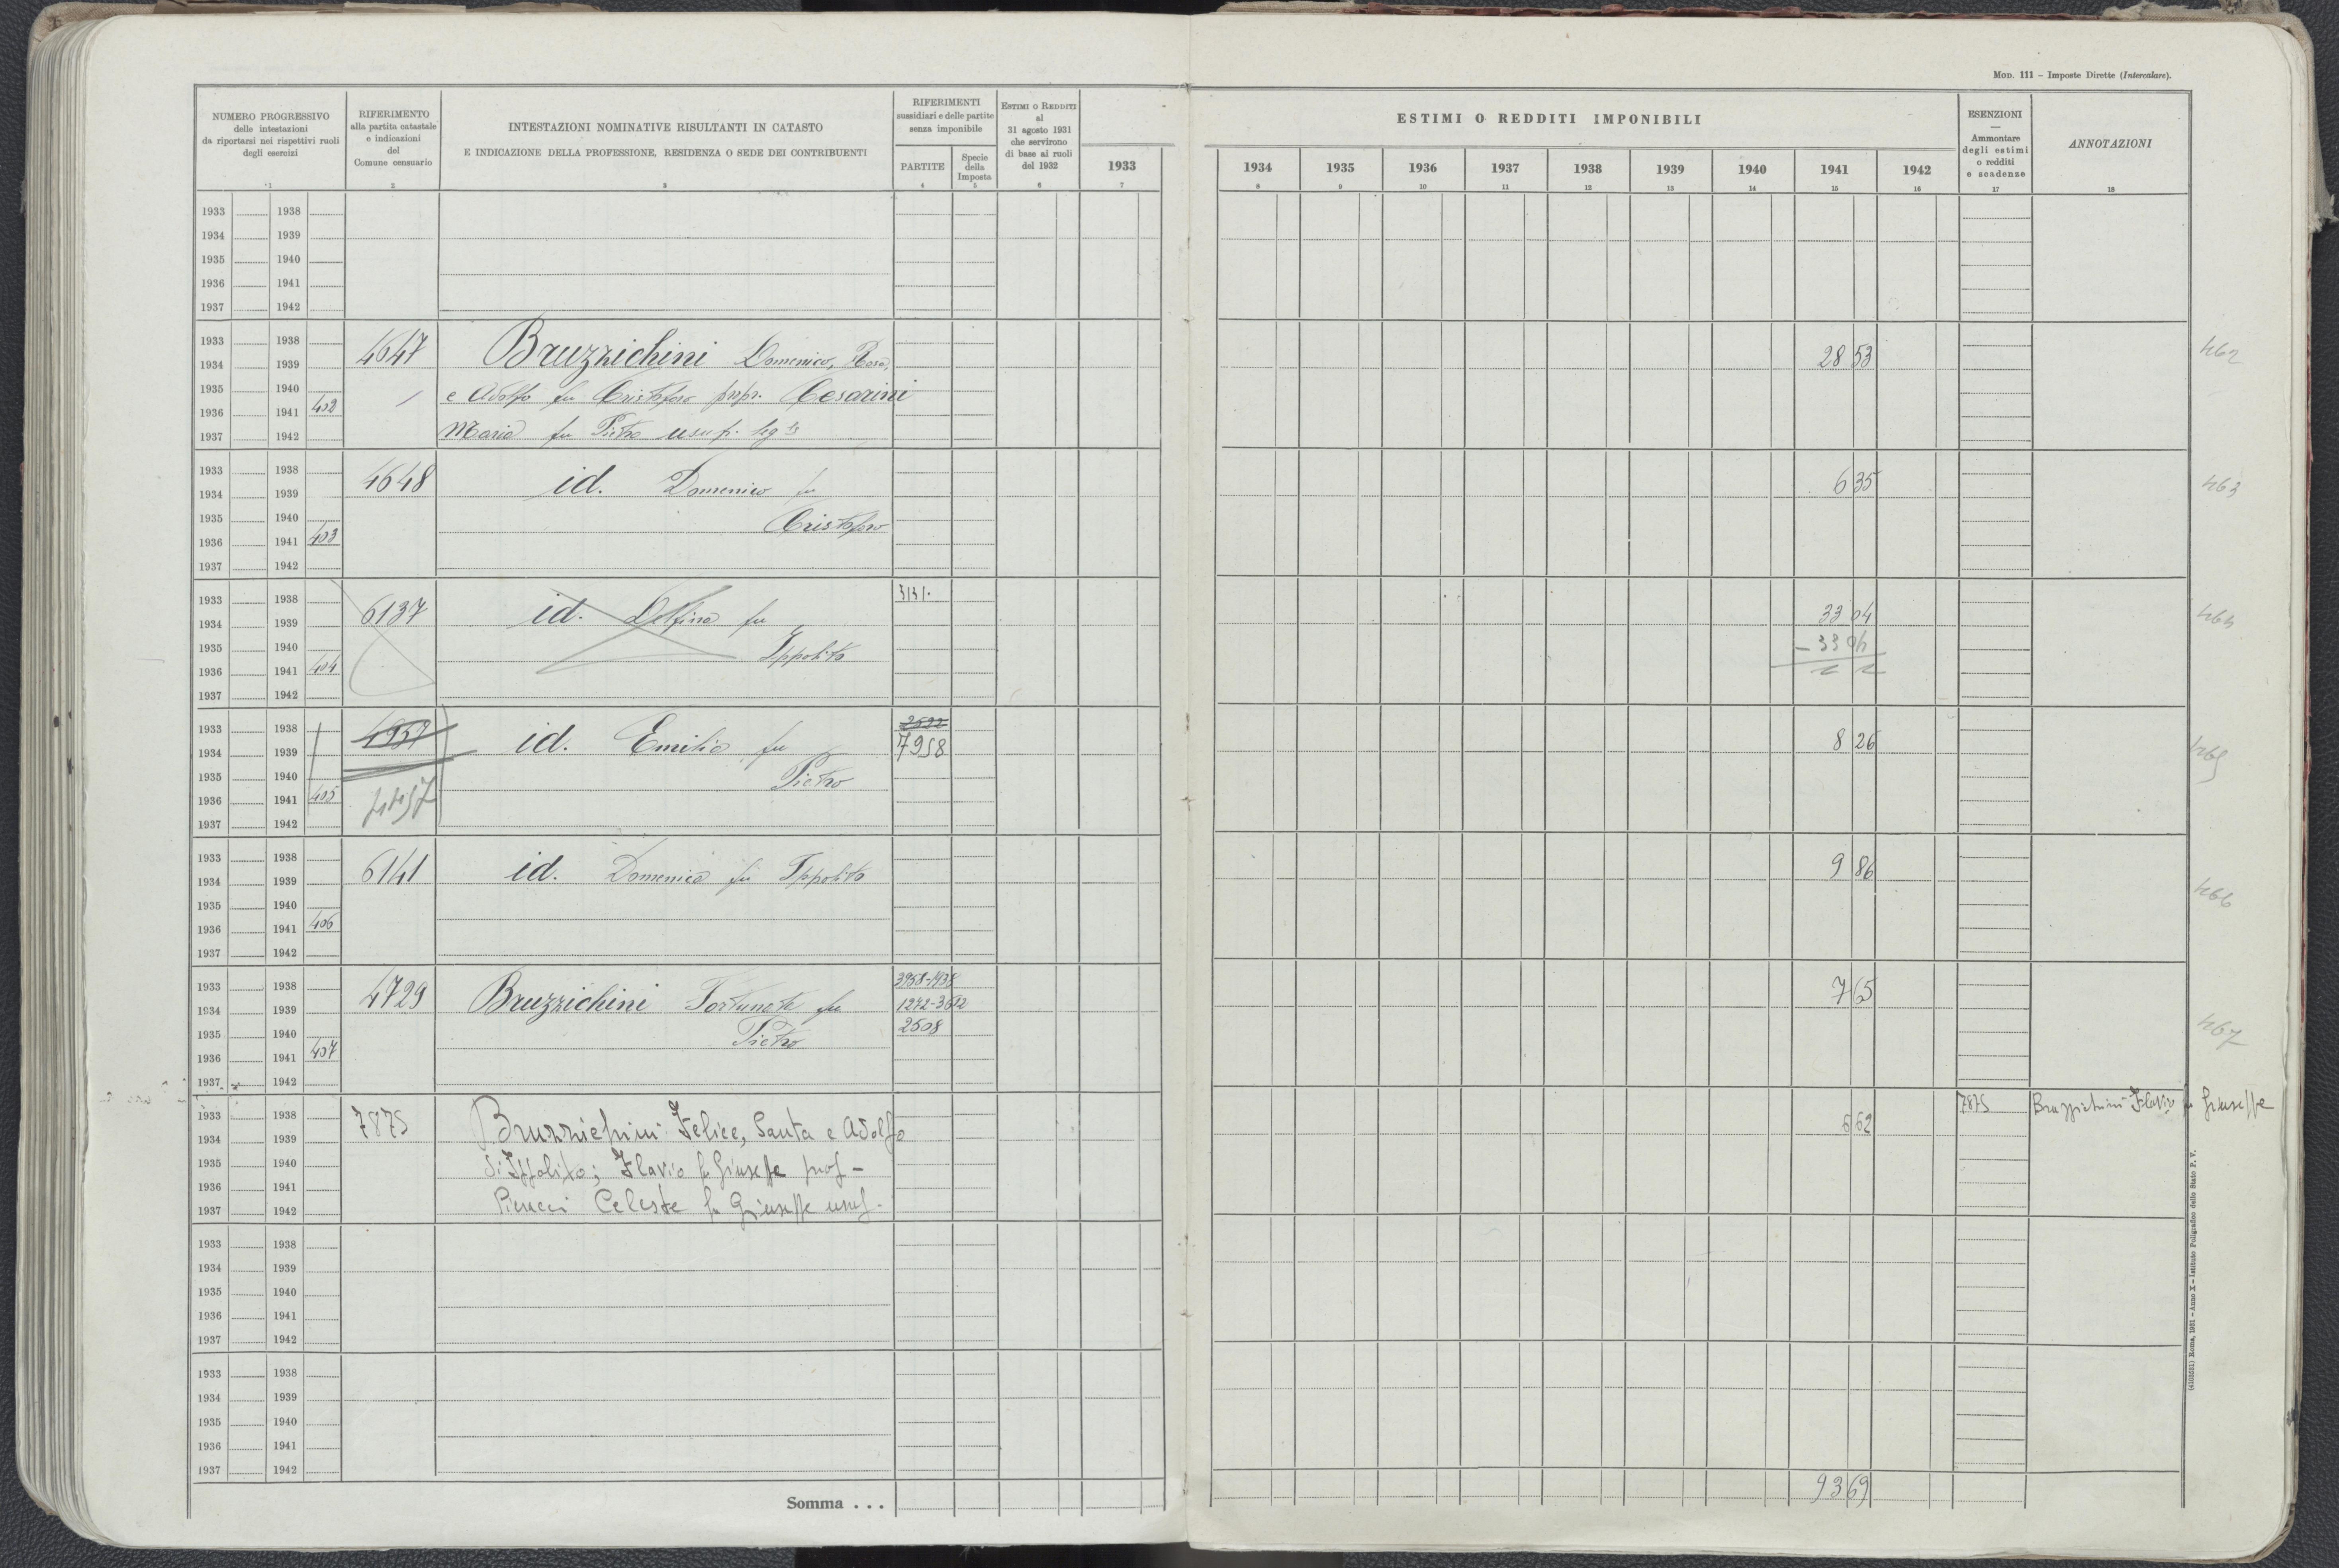 MOD. 111 – Imposte Dirette (Intercalare).
NUMERO PROGRESSIVO
delle intestazioni
da riportarsi nei rispettivi ruoli
degli esercizi
1
RIFERIMENTO
alla partita catastale
e indicazioni
del
Comune censuario
2
INTESTAZIONI NOMINATIVE RISULTANTI IN CATASTO
E INDICAZIONE DELLA PROFESSIONE, RESIDENZA O SEDE DEI CONTRIBUENTI
3
RIFERIMENTI
sussidiari e delle partite
senza imponibile
PARTITE
4
Specie
della
Imposta
5
ESTIMI O REDDITI
al
31 agosto 1931
che servirono
di base ai ruoli
del 1932
6
1933
7
ESTIMI O REDDITI IMPONIBILI
1934 1935 1936 1937 1938 1939 1940 1941 1942
8 9 10 11 12 13 14 15 16
ESENZIONI
—
Ammontare
degli estimi
o redditi
e scadenze
17
ANNOTAZIONI
18
1933 1938
1934 1939
1935 1940
1936 1941
1937 1942
1933 1938 4647 Bruzzichini Domenico, Rosa, 28 53 462
1934 1939
1935 1940 e Adolfo fu Cristoforo propr. Cesarini
1936 1941 402
1937 1942 Maria fu Pietro usuf.
1933 1938 4648 id. Domenico fu 6 35 463
1934 1939
1935 1940 Cristoforo
1936 1941 403
1937 1942
1933 1938 6137 id. Delfina fu 3131. 33 04 464
1934 1939
1935 1940 Ippolito – 33 04
1936 1941 404
1937 1942
1933 1938 4957 id. Emilia fu 7958 8 26 465
1934 1939
1935 1940 Pietro
1936 1941 405
1937 1942
1933 1938 6141 id. Domenica fu Ippolito 9 86 466
1934 1939
1935 1940
1936 1941 406
1937 1942
1933 1938 4729 Bruzzichini Fortunato fu 7 65 467
1934 1939 1272-3612
1935 1940 Pietro 2508
1936 1941 407
1937 1942
1933 1938 7875 Bruzzichini Felice, Santa e Adolfo 6 62 7875 Bruzzichini Flavio fu Giuseppe
1934 1939
1935 1940 di Ippolito; Flavio fu Giuseppe prop –
1936 1941
1937 1942 Pieracci Celeste fu Giuseppe usuf.
1933 1938
1934 1939
1935 1940
1936 1941
1937 1942
1933 1938
1934 1939
1935 1940
1936 1941
1937 1942
Somma . . . 93 69
(4103531) Roma, 1931 – Anno X – Istituto Poligrafico dello Stato P. V.